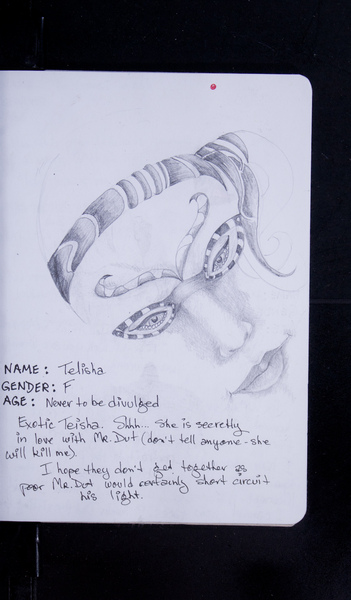 NAME: Telisha
GENDER: F
AGE: Never to be divulged
Exotic Teisha. Shhh... she is secretly
in love with Mr. Dut (don't tell anyone - she
will kill me).
I hope they don't get together as
poor Mr. Dut would certainly short circuit
his light.